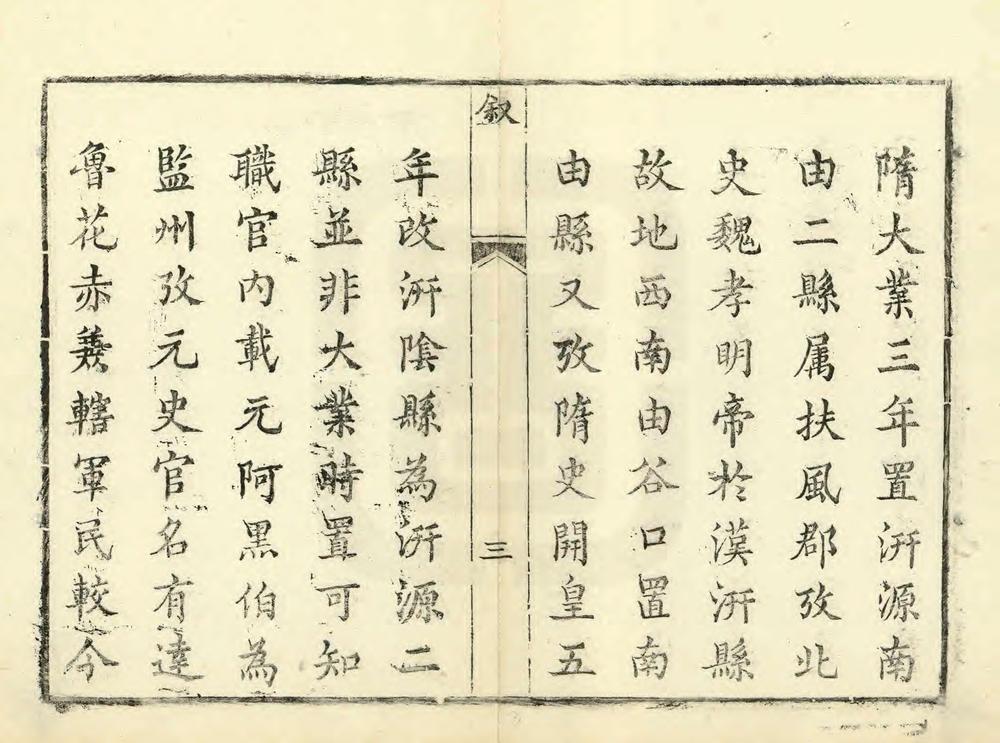 隋大業三年置汧源南
由二縣属扶風郡攷北
史魏孝明帝於漢汧縣
故地西南由谷口置南
由縣又攷隋史開皇五
叙
三
年改汧陰縣為汧源二
縣並非大業時置可知
職官內載元阿黑伯為
監州攷元史官名有達
魯花赤兼轄軍民較今